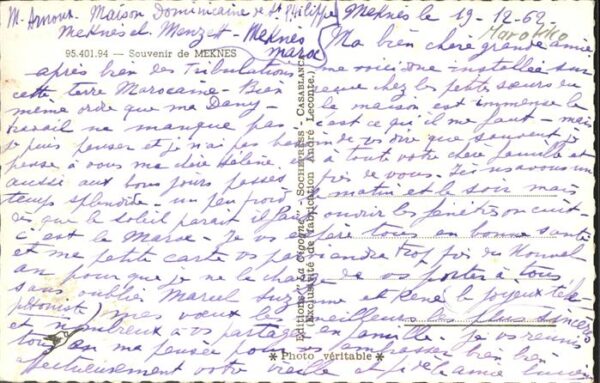 M. Arnoux. Maison Dominicaine de St Philippe
Meknes el Menzeh - Meknes
Maroc
95.401.94 — Souvenir de MEKNES
Meknes le 19-12-62
Marokko
Ma bien chere grande amie
après bien des Tribulations me voici installée sur
cette terre Marocaine - Bien reçue chez les petites sœurs du
même ordre que ma Dany - la maison est immense le
travail ne manque pas c'est ce qu'il me faut - mais
je puis penser et je n'ai pas besoin de vous dire que souvent je
pense à vous ma chère à toute votre chère famille et
aussi aux bons jours passés près de vous. Ici nous avons un
temps splendide - un peu froid le matin et le soir mais
dès que le soleil parait il faut ouvrir les fenêtres on cuit -
c'est le Maroc - Je vous espère tous en bonne santé
et ma petite carte vous trop près du Nouvel
an pour que je ne la charge de vous porter à tous
sans oublier Marcel et René (le joyeux télé-
phoniste) mes vœux les meilleurs les plus sincères
et nombreux à vous partager en famille. Je vous réunis
tous en ma pensée pour vous embrasser bien bien
affectueusement votre vieille et fidele amie
Editions "La Cigogne" - SOCHEPRESS - CASABLANCA
(Exclusivité de fabrication André Leconte.)
* Photo véritable *